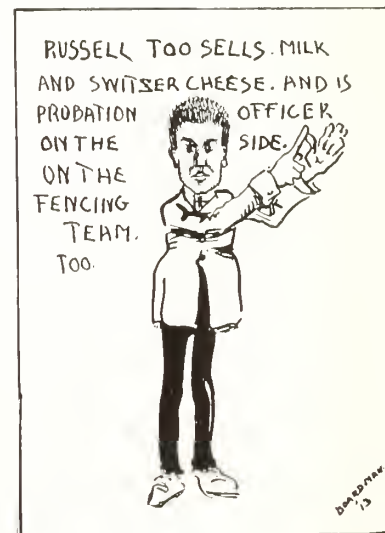 RUSSELL TOO SELLS. MILK
AND SWITZER CHEESE. AND IS
PROBATION OFFICER
ON THE SIDE.
ON THE
FENCING
TEAM.
TOO.
BOARDMAN.
'13